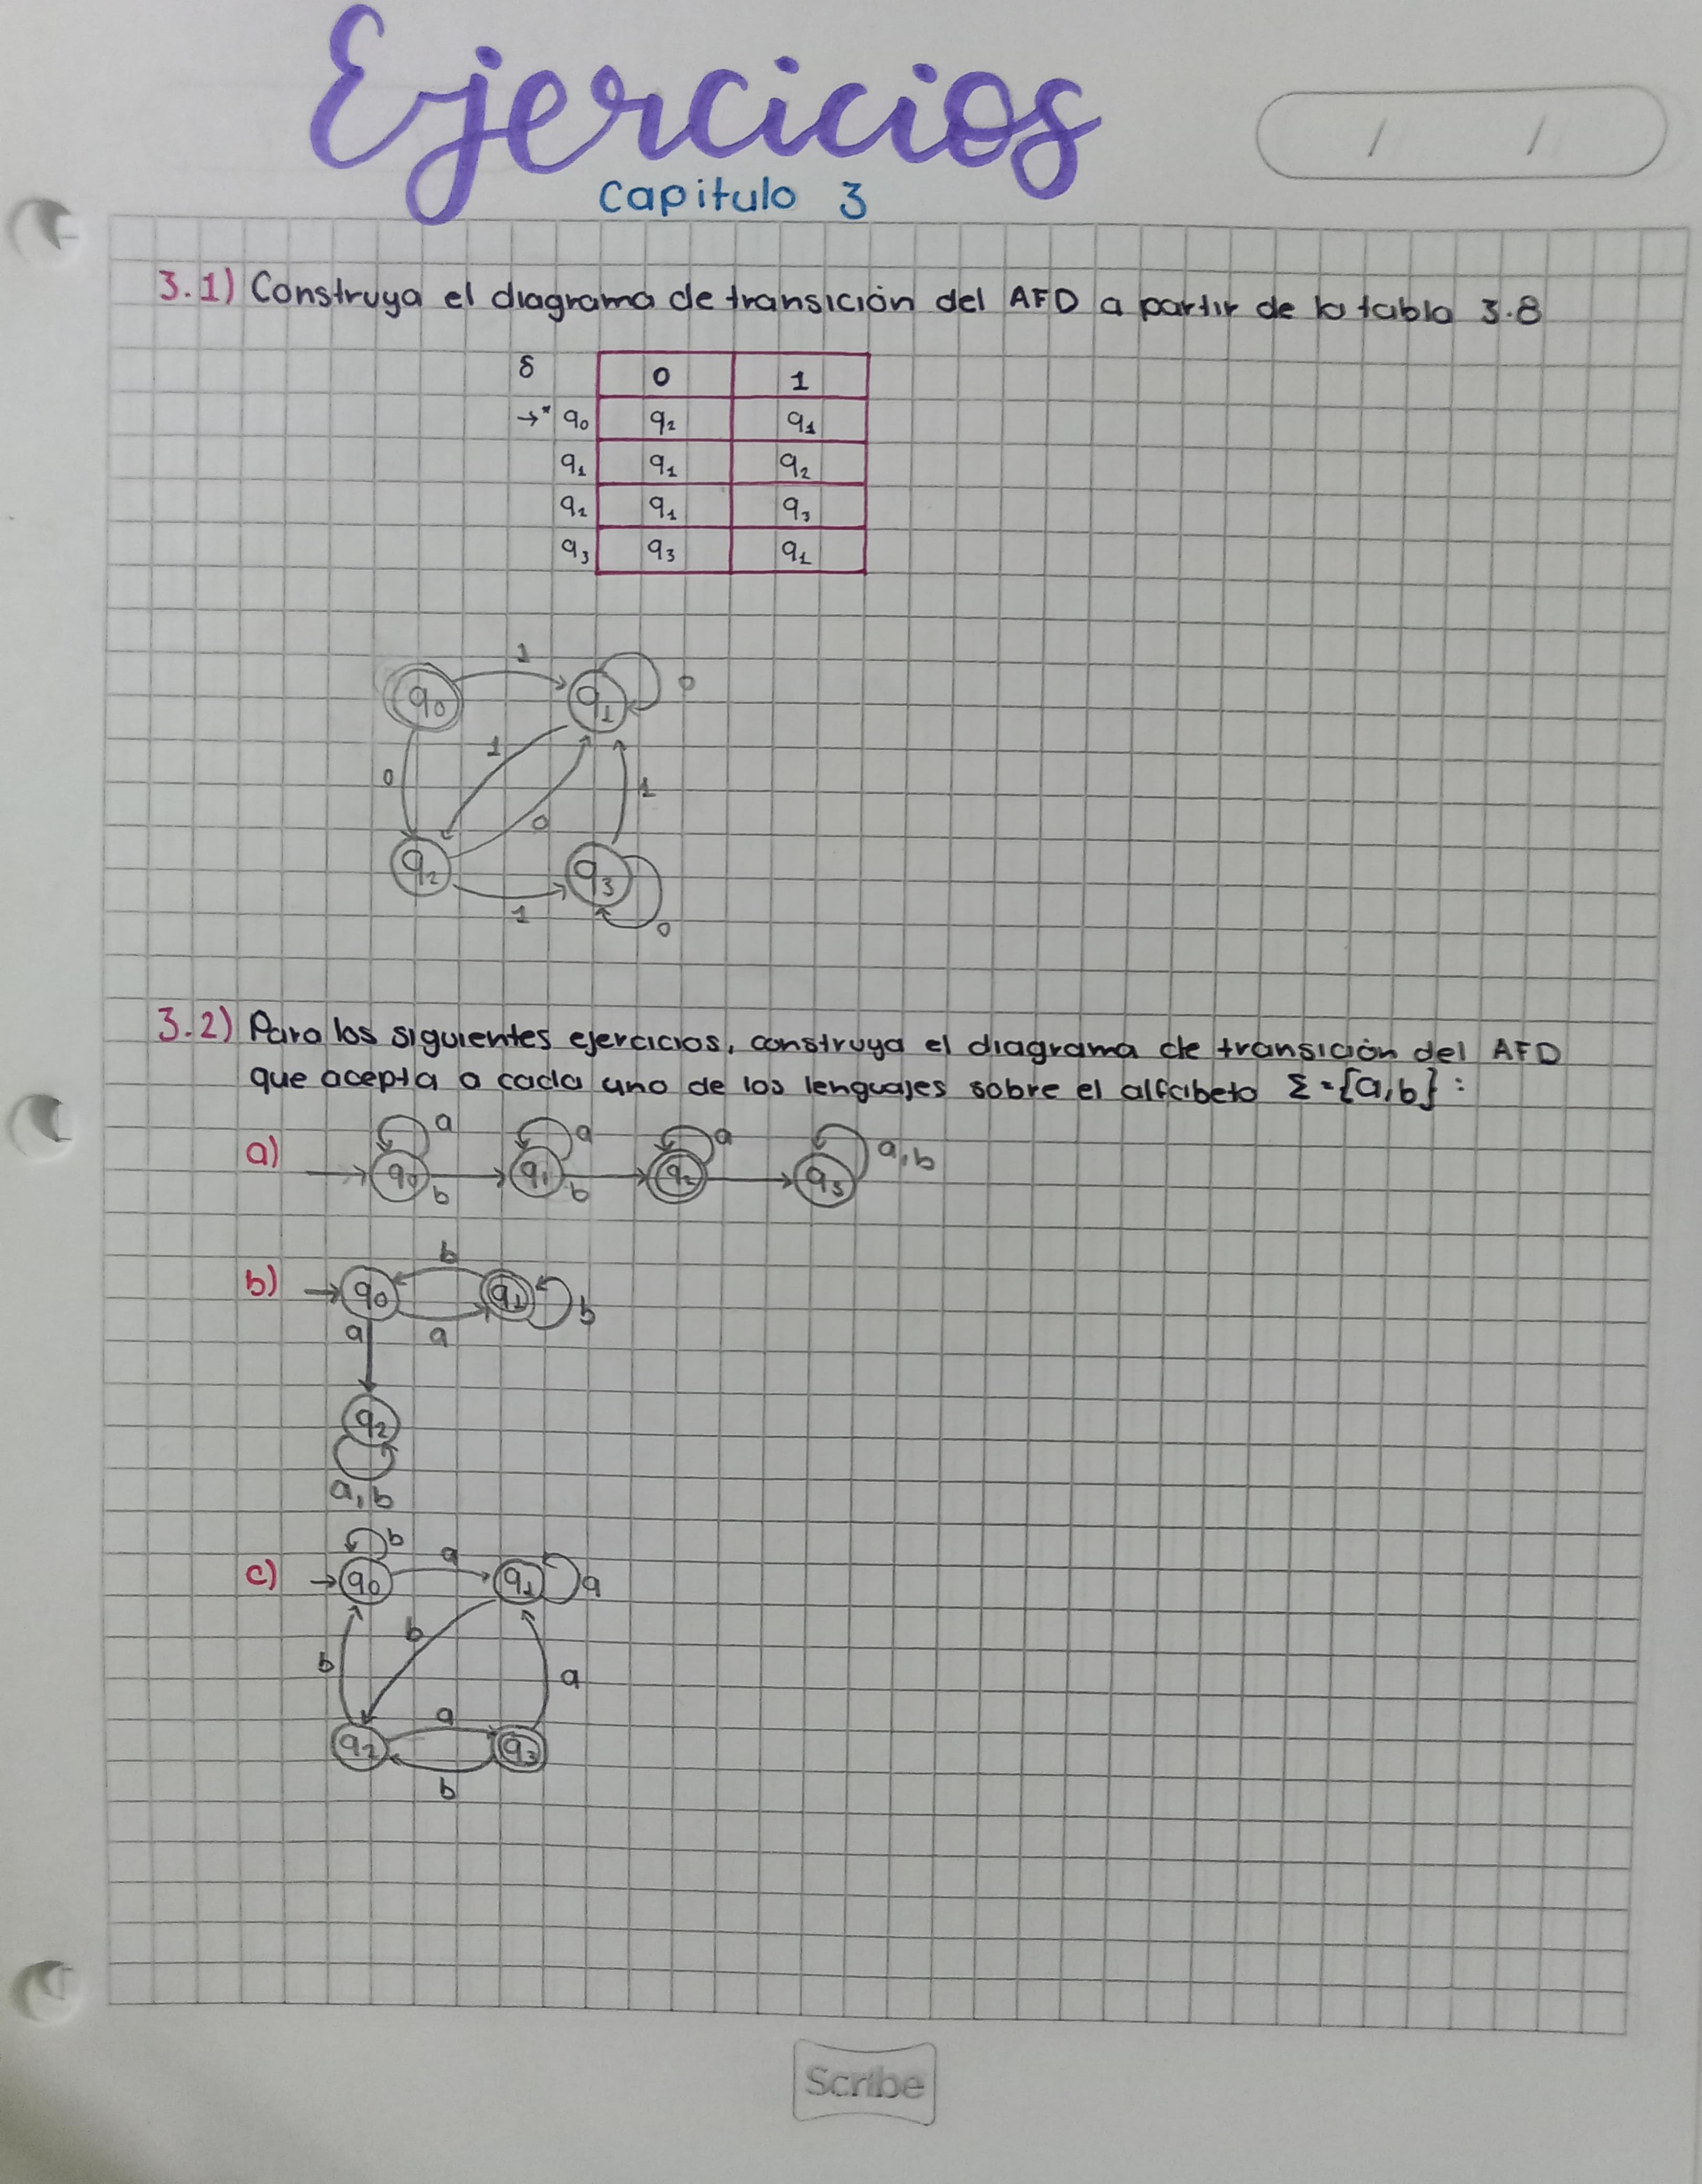 Ejercicios
Capitulo 3
/ /
3.1) Construya el diagrama de transición del AFD a partir de la tabla 3.8
δ 0 1
→* q₀ q₂ q₁
q₁ q₁ q₂
q₂ q₁ q₃
q₃ q₃ q₁
1
q₀ q₁ 0
1
0 1
0
q₂ q₃
1 0
3.2) Para los siguientes ejercicios, construya el diagrama de transición del AFD
que acepta a cada uno de los lenguajes sobre el alfabeto Σ={a,b}:
a a a a,b
a) q₀ b q₁ b q₂ q₃
b
b) q₀ q₁ b
a a
q₂
a,b
b a
c) q₀ q₁ a
b
b a
a
q₂ q₃
b
Scribe